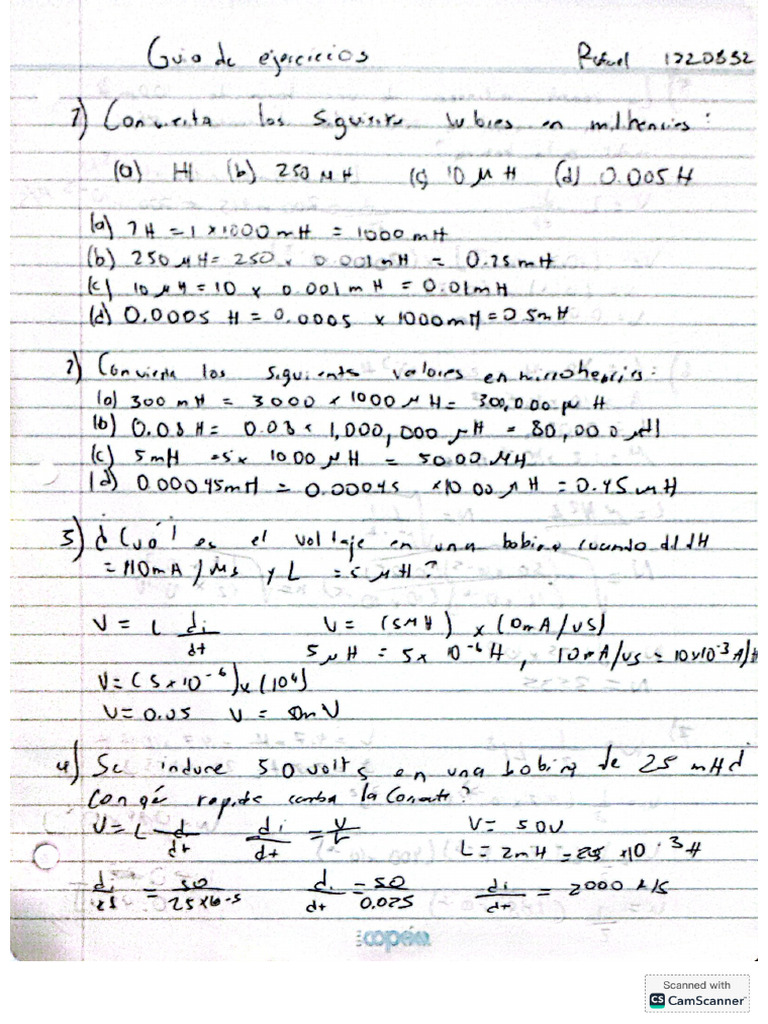 Guia de ejercicios Rafael 1220832
1) Convierta los siguientes en milhenries:
(a) H (b) 250 μH (c) 10 μH (d) 0.005 H
(a) 1H = 1 × 1000 mH = 1000 mH
(b) 250 μH = 250 × 0.001 mH = 0.25 mH
(c) 10 μH = 10 × 0.001 m H = 0.01 mH
(d) 0.0005 H = 0.0005 × 1000 mH = 0.5 mH
2) Convierta los siguientes valores en
(a) 300 mH = 3000 × 1000 μH = 300,000 μH
(b) 0.08 H = 0.08 × 1,000,000 μH = 80,000 μH
(c) 5 mH = 5 × 1000 μH = 5000 μH
(d) 0.00045 mH = 0.00045 × 1000 μH = 0.45 μH
3) ¿Cuál es el voltaje en una bobina cuando
= 110mA/μs y L = 5 μH?
V = L di/dt V = (5μH) × (0mA/us)
5 μH = 5 × 10^-6 H, 10mA/us = 10×10^-3 A/
V = (5×10^-6) × (10^4)
V = 0.05 V =
4) Se induce 50 volts en una bobina de 25 mH
Con qué rapidez cambia la
V = L di/dt di/dt = V/L V = 50V
L = 2mH = 25 × 10^-3 H
= 50/ di/dt = 50/0.025 di/dt = 2000
copán
Scanned with
CS CamScanner